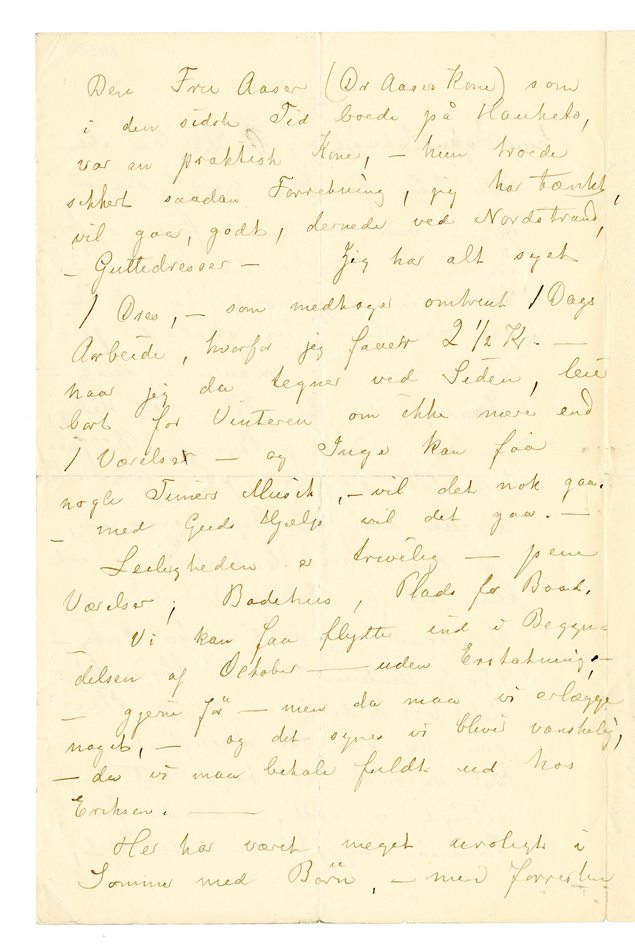 Den Fru Aaser (Dr Aasers Kone) som
i den sidste Tid boede på Haukets,
var en praktisk Kone, – hun troede
sikkert saadan Forretning, jeg har tænkt,
vil gaa, godt, dernede ved Nordstrand,
– Guttedresser – Jeg har alt syet
1 Dres, – som medtager omtrent 1 Dags
Arbeide, hvorfor jeg faaer 2 1/2 Kr. –
naar jeg da tegner ved Siden, leie
bort for Vinteren om ikke mere end
1 Værelse – og Inga kan faa
nogle Timers Musik, – vil det nok gaa.
– med Guds Hjælp vil det gaa. –
Leiligheden er trivelig – pene
Værelser, Badehus, Plads for Baad.
Vi kan faa flytte ind i Begyn-
delsen af October – uden Erstatning, –
– gjerne før – men da maa vi erlægge
noget, – og det synes vi blive vanskelig,
– da vi maa betale fuldt ud hos
Eriksen. –
Her har været meget uroligt i
Sommer med Børn, – men forresten